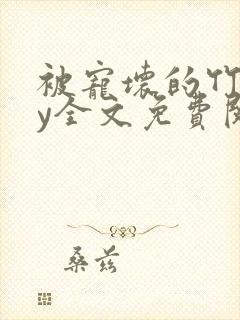 被寵壞的竹
y全文免費閱
桑茲